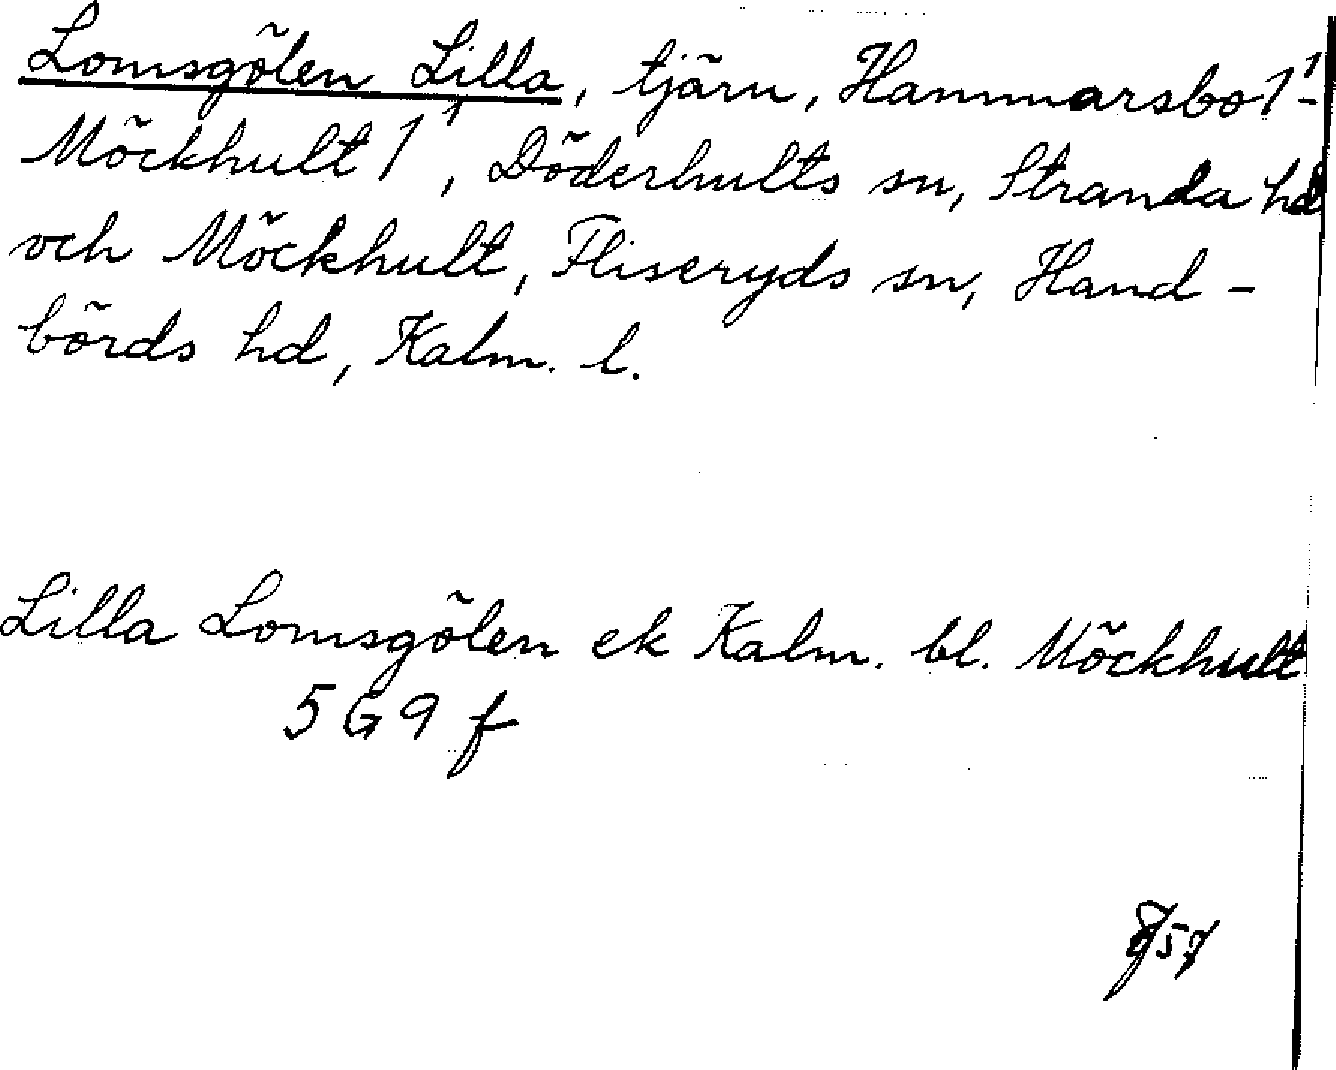 Lomsgölen Lilla, tjärn, Hammarsbo 1¹-
Möckhult 1¹, Döderhults sn, Stranda hd
och Möckhult, Fliseryds sn, Hand-
börds hd, Kalm. l.
Lilla Lomsgölen ek Kalm. bl. Möckhult
5 G 9 f